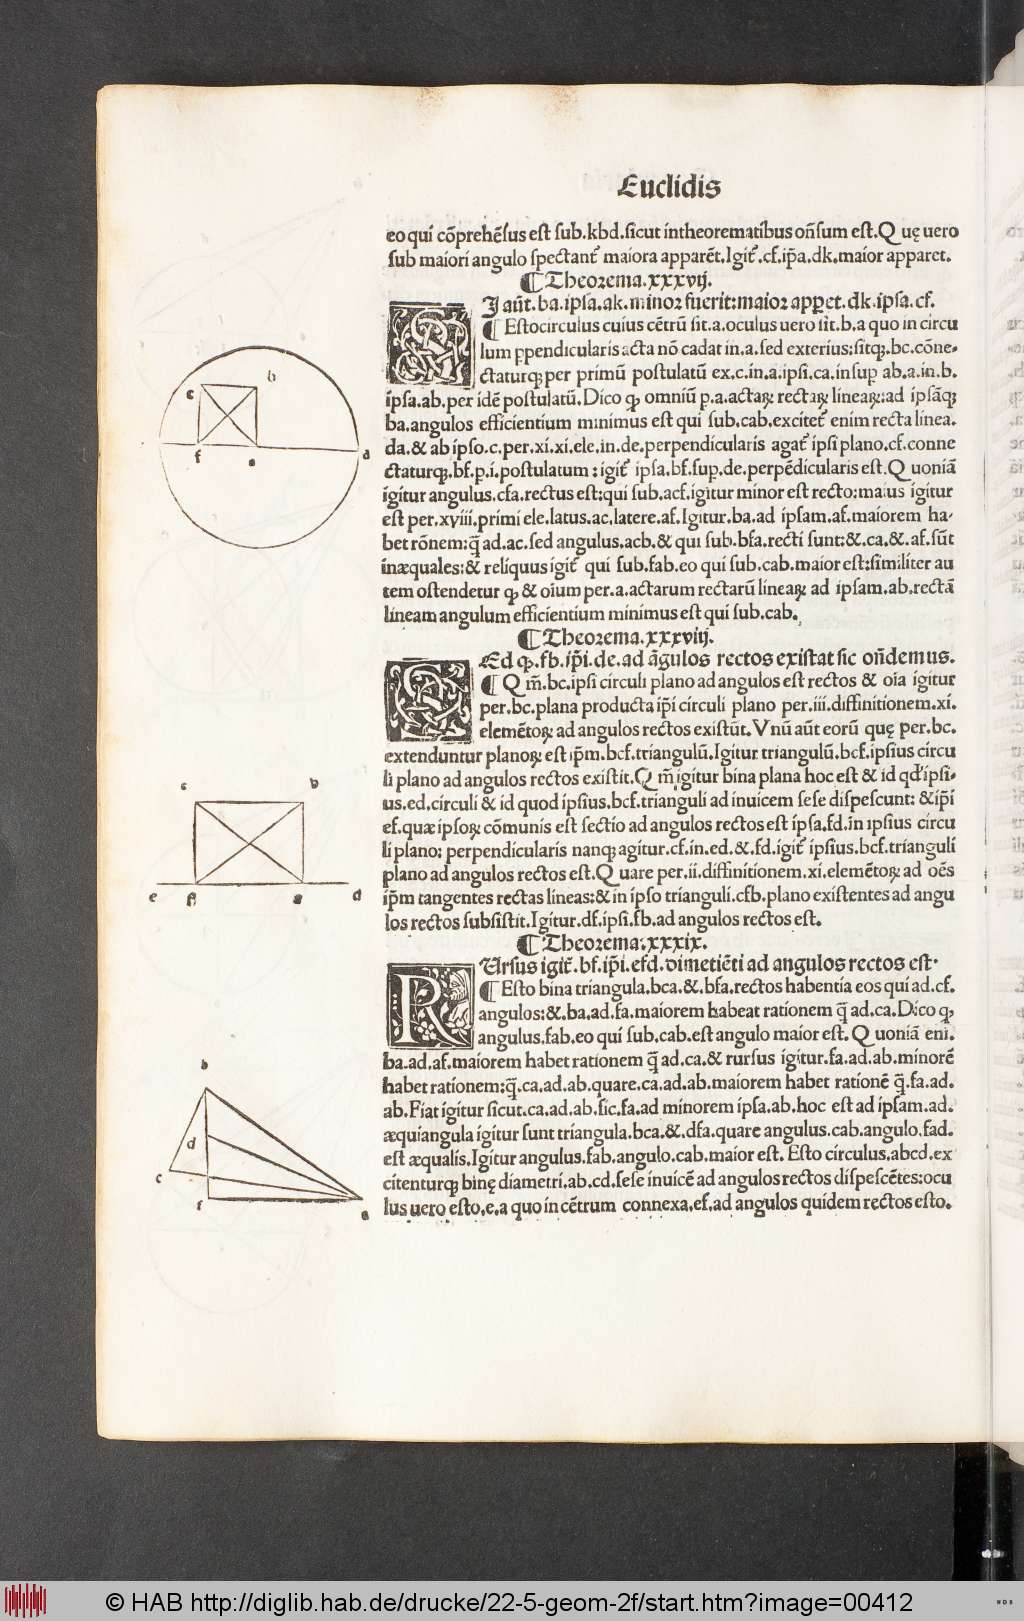 Euclidis
eo qui cõprehẽsus est sub.kbd.sicut intheorematibus oñsum est.Q uę uero
sub maiori angulo spectant᷒ maiora apparẽt.Igit᷒.cf.ip̃a.dk.maior apparet.
¶Theorema.xxxvij.
SI aũt.ba.ipsa.ak.minor fuerit:maior apꝑet.dk.ipsa.cf.
¶Estocirculus cuius cẽtrũ sit.a.oculus uero sit.b.a quo in circu
lum ꝑpendicularis acta nõ cadat in.a.sed exterius:sitqꝫ.bc.cõne-
ctaturqꝫ per primũ postulatũ ex.c.in.a.ipsi.ca.insuꝑ ab.a.in.b.
ipsa.ab.per idẽ postulatũ.Dico qꝫ omniũ ꝑ.a.actaꝝ rectaꝝ lineaꝝ:ad ipsãqꝫ
ba.angulos efficientium minimus est qui sub.cab.excitet᷒ enim recta linea.
da.& ab ipso.c.per.xi.xi.ele.in.de.perpendicularis agat᷒ ipsi plano.cf.conne
ctaturqꝫ.bf.ꝑ.i.postulatum:igit᷒ ipsa.bf.suꝑ.de.perpẽdicularis est.Q uoniã
igitur angulus.cfa.rectus est:qui sub.acf.igitur minor est recto:maius igitur
est per.xviii.primi ele.latus.ac.latere.af.Igitur.ba.ad ipsam.af.maiorem ha-
bet rõnem:q̃ ad.ac.sed angulus.acb.& qui sub.bfa.recti sunt:&.ca.&.af.sũt
inæquales:& reliquus igit᷒ qui sub.fab.eo qui sub.cab.maior est:similiter au
tem ostendetur qꝫ & oium per.a.actarum rectarũ lineaꝝ ad ipsam.ab.rectã
lineam angulum efficientium minimus est qui sub.cab.
¶Theorema.xxxviij.
SEd qꝫ.fb.ip̃i.de.ad ãgulos rectos existat sic oñdemus.
¶Q m̃.bc.ipsi circuli plano ad angulos est rectos & oia igitur
per.bc.plana producta ip̃i circuli plano per.iii.diffinitionem.xi.
elemẽtoꝝ ad angulos rectos existũt.Vnũ aũt eorũ quę per.bc.
extenduntur planoꝝ est ip̃m.bcf.triangulũ.Igitur triangulũ.bcf.ipsius circu
li plano ad angulos rectos existit.Q m̃ igitur bina plana hoc est & id qd᷒ ipsi-
us.ed.circuli & id quod ipsius.bcf.trianguli ad inuicem sese dispescunt: &ip̃i
ef.quæ ipsoꝝ cõmunis est sectio ad angulos rectos est ipsa.fd.in ipsius circu
li plano: perpendicularis nanqꝫ agitur.cf.in.ed.&.fd.igit᷒ ipsius.bcf.trianguli
plano ad angulos rectos est.Q uare per.ii.diffinitionem.xi.elemẽtoꝝ ad oẽs
ip̃m tangentes rectas lineas:& in ipso trianguli.cfb.plano existentes ad angu
los rectos subsistit.Igitur.df.ipsi.fb.ad angulos rectos est.
¶Theorema.xxxix.
RUrsus igit᷒.bf.ip̃i.efd.dimetiẽti ad angulos rectos est.
¶Esto bina triangula.bca.&.bfa.rectos habentia eos qui ad.cf.
angulos:&.ba.ad.fa.maiorem habeat rationem q̃ ad.ca.Dico qꝫ
angulus.fab.eo qui sub.cab.est angulo maior est.Q uoniã eni.
ba.ad.af.maiorem habet rationem q̃ ad.ca.& rursus igitur.fa.ad.ab.minorẽ
habet rationem:q̃.ca.ad.ab.quare.ca.ad.ab.maiorem habet rationẽ q̃.fa.ad.
ab.Fiat igitur sicut.ca.ad.ab.sic.fa.ad minorem ipsa.ab.hoc est ad ipsam.ad.
æquiangula igitur sunt triangula.bca.&.dfa.quare angulus.cab.angulo.fad.
est æqualis.Igitur angulus.fab.angulo.cab.maior est. Esto circulus.abcd.ex
citenturqꝫ binę diametri.ab.cd.sese inuicẽ ad angulos rectos dispescẽtes:ocu
lus uero esto.e.a quo in cẽtrum connexa.ef.ad angulos quidem rectos esto.
c b
f a d
c b
e f a d
b
d
c
f a
© HAB http://diglib.hab.de/drucke/22-5-geom-2f/start.htm?image=00412